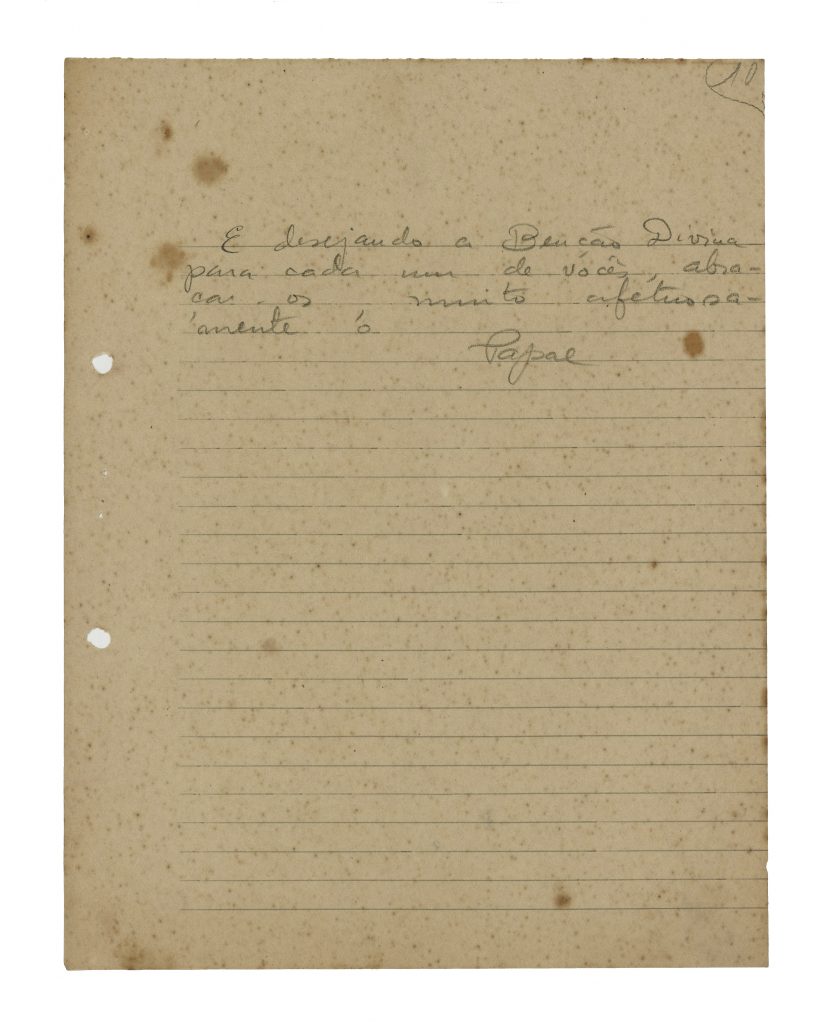 10
E desejando a Benção Divina
para cada um de vócês, abra-
ça-os muito afétuosa-
mente o
Papae